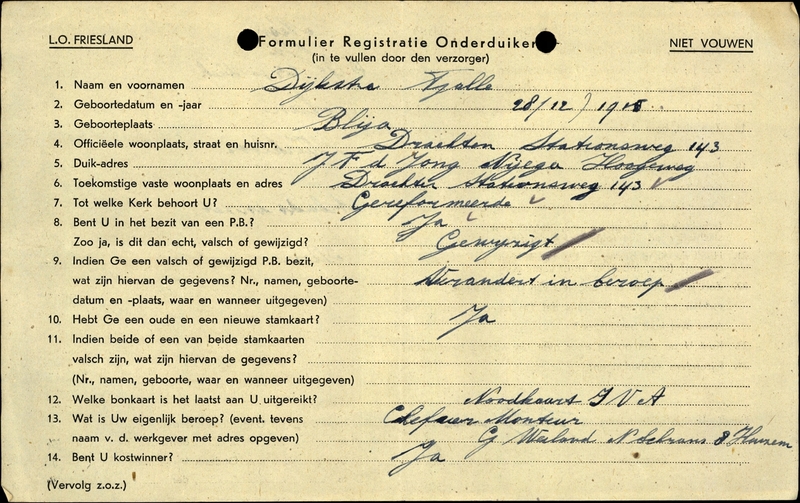 L.O. FRIESLAND
Formulier Registratie Onderduiker
NIET VOUWEN
(in te vullen door den verzorger)
1. Naam en voornamen Dijkstra Tjalle
2. Geboortedatum en -jaar 28/12/1915
3. Geboorteplaats Blija
4. Officiëele woonplaats, straat en huisnr. Drachten Stationsweg 143
5. Duik-adres J F d Jong Nijega
6. Toekomstige vaste woonplaats en adres Drachten Stationsweg 143
7. Tot welke Kerk behoort U? Gereformeerde
8. Bent U in het bezit van een P.B.? Ja
Zoo ja, is dit dan echt, valsch of gewijzigd? Gewyzigt
9. Indien Ge een valsch of gewijzigd P.B. bezit,
wat zijn hiervan de gegevens? Nr., namen, geboorte- Verandert in beroep
datum en -plaats, waar en wanneer uitgegeven)
10. Hebt Ge een oude en een nieuwe stamkaart? Ja
11. Indien beide of een van beide stamkaarten
valsch zijn, wat zijn hiervan de gegevens?
(Nr., namen, geboorte, waar en wanneer uitgegeven)
12. Welke bonkaart is het laatst aan U uitgereikt? Noodkaart I V A
13. Wat is Uw eigenlijk beroep? (event. tevens Monteur
naam v. d. werkgever met adres opgeven) G Weiland N Schrans 8 Huizem
14. Bent U kostwinner? Ja
(Vervolg z.o.z.)